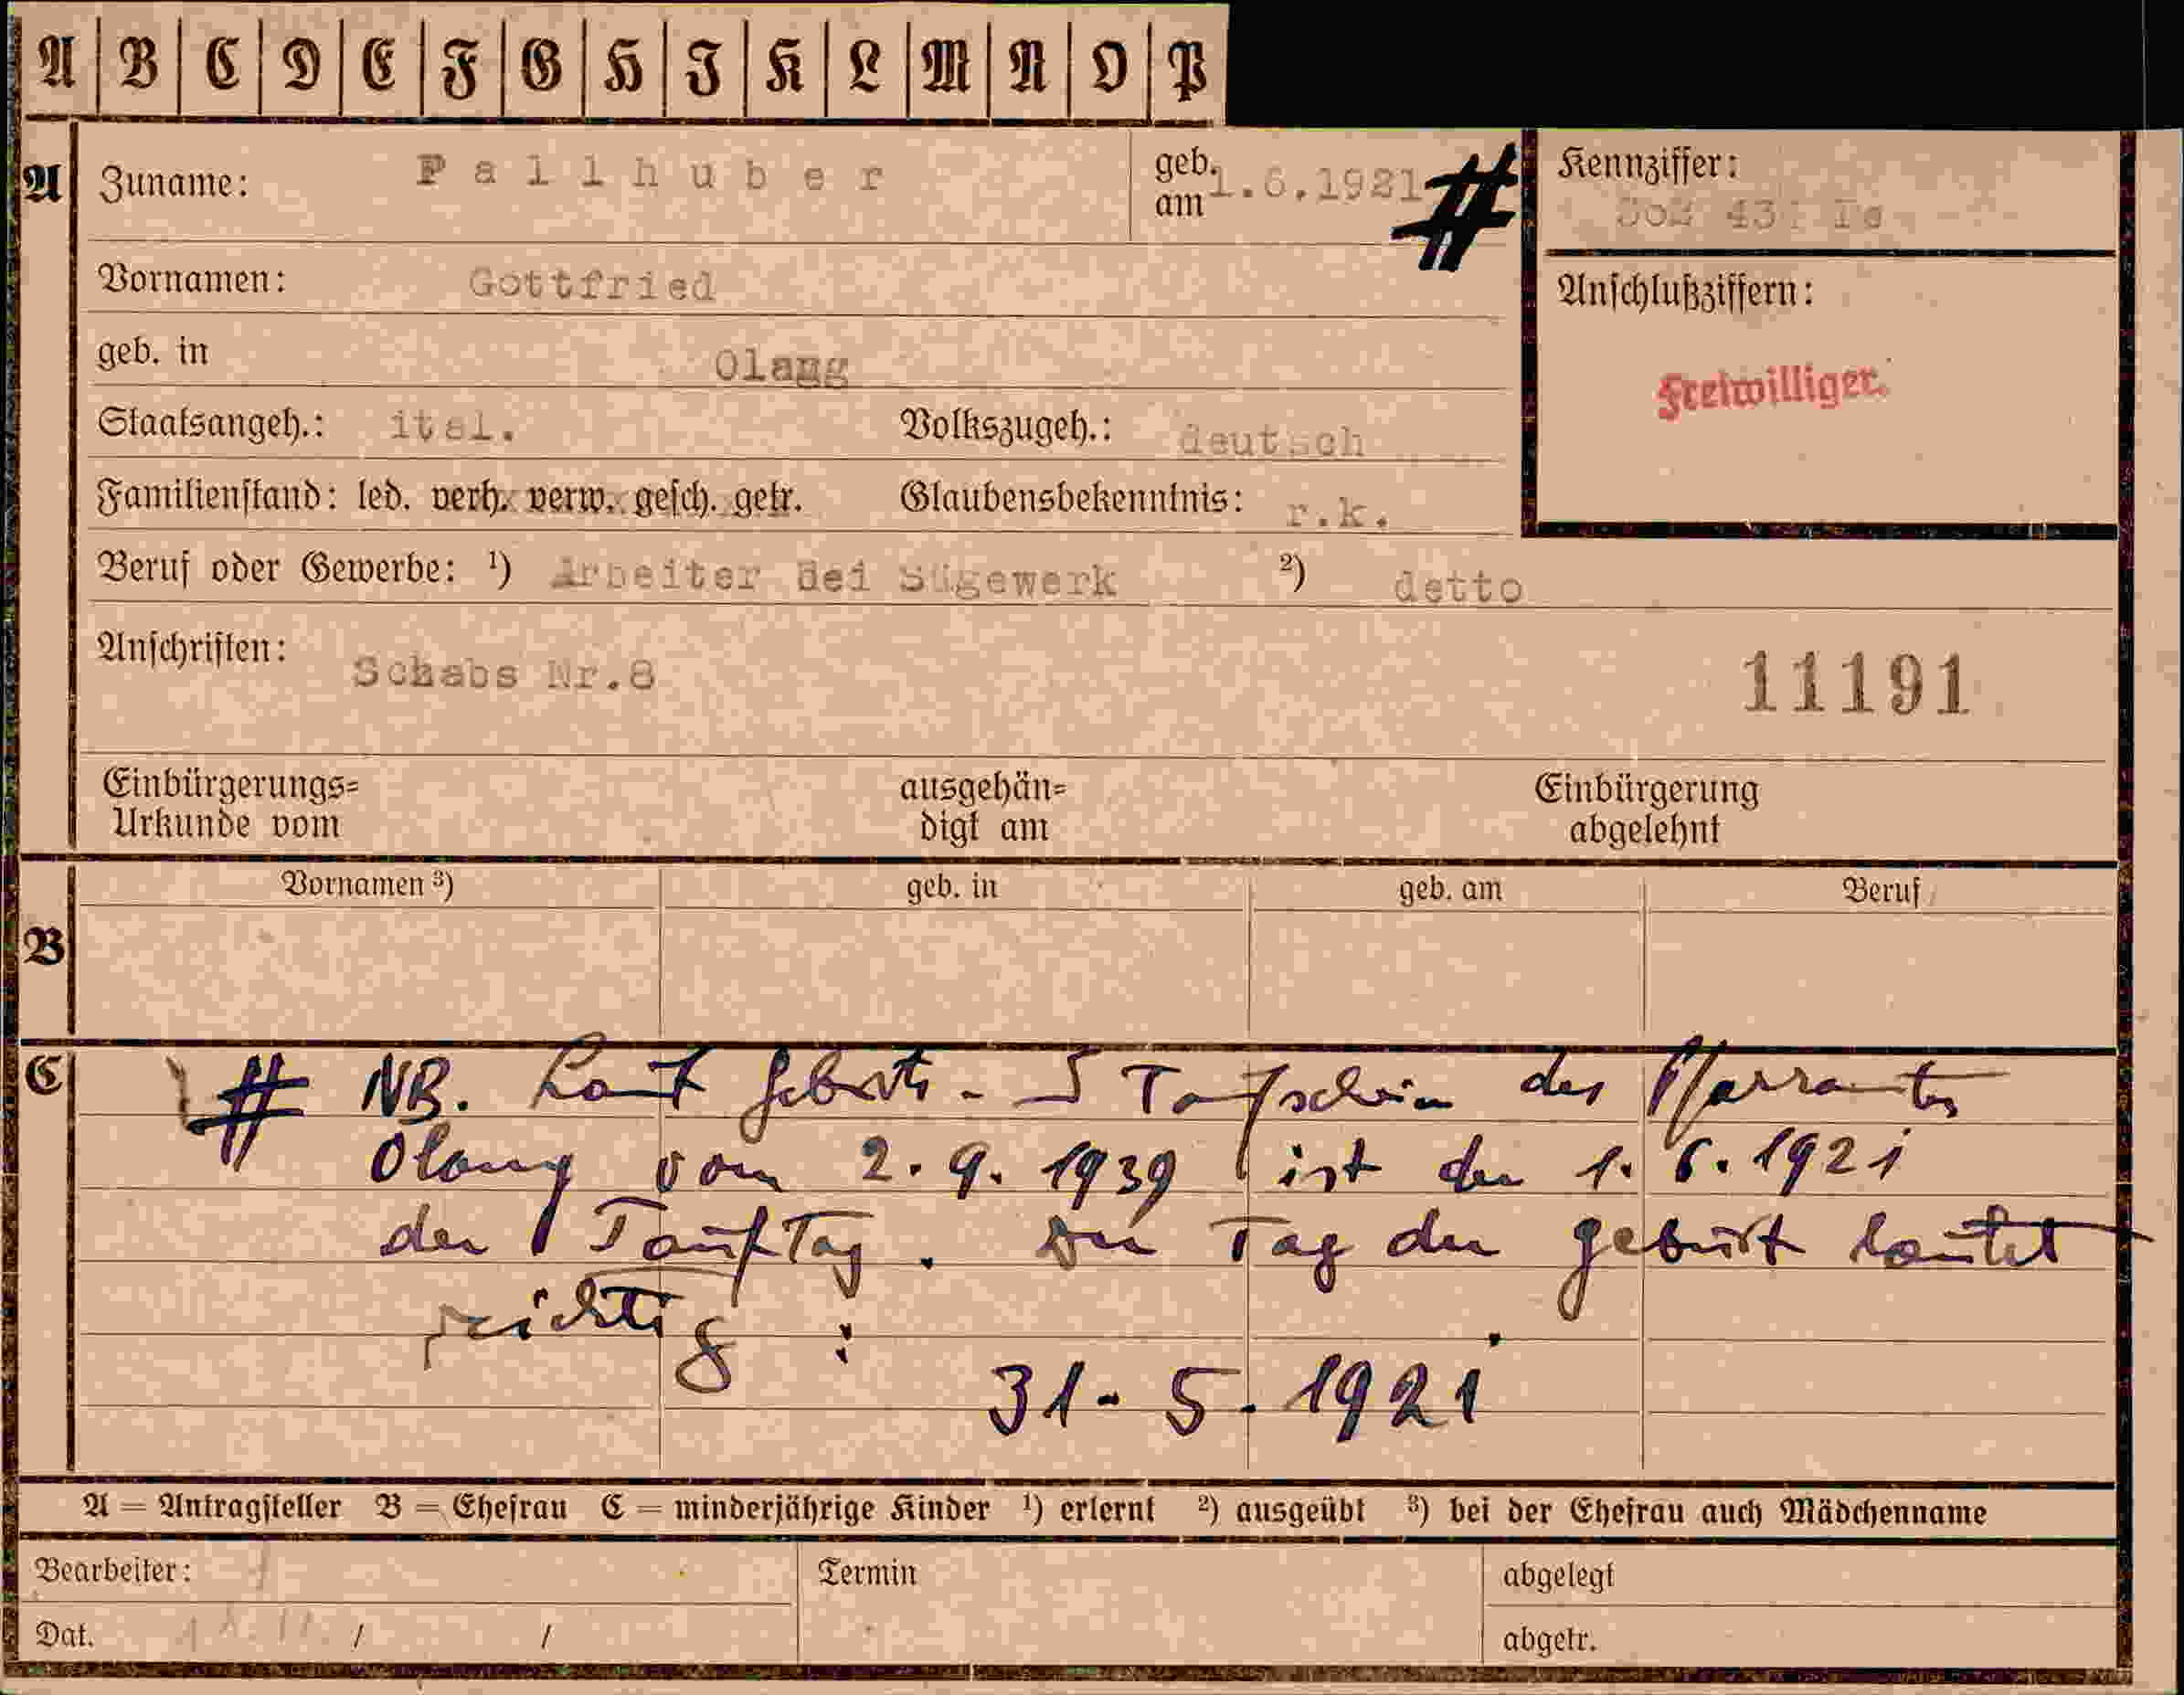 A B C D E F G H I K L M N O P
A Zuname: Pallhuber geb. am 1.6.1921 # Kennziffer:
Vornamen: Gottfried Anschlußziffern:
geb. in Olang Freiwilliger.
Staatsangeh.: ital. Volkszugeh.: deutsch
Familienstand: led. verh. verw. gesch. getr. Glaubensbekenntnis: r.k.
Beruf oder Gewerbe: ¹) Arbeiter bei Sägewerk ²) detto
Anschriften: Schabs Nr.8 11191
Einbürgerungs= ausgehän= Einbürgerung
Urkunde vom digt am abgelehnt
B Vornamen ³) geb. in geb. am Beruf
C # NB. Laut Geburts- Taufschein des Pfarramtes
Olang vom 2.9.1939 ist der 1.6.1921
der Tauftag. Der Tag der Geburt lautet
richtig :
31-5.1921
A = Antragsteller B = Ehefrau C = minderjährige Kinder ¹) erlernt ²) ausgeübt ³) bei der Ehefrau auch Mädchenname
Bearbeiter: Termin abgelegt
Dat. / / abgetr.